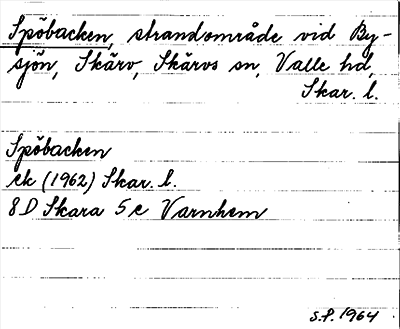 Spöbacken, strandområde vid By-
sjön, Skärv, Skärvs sn, Valle hd,
Skar. l.
Spöbacken
ek (1962) Skar. l.
8D Skara 5e Varnhem
S.F. 1964